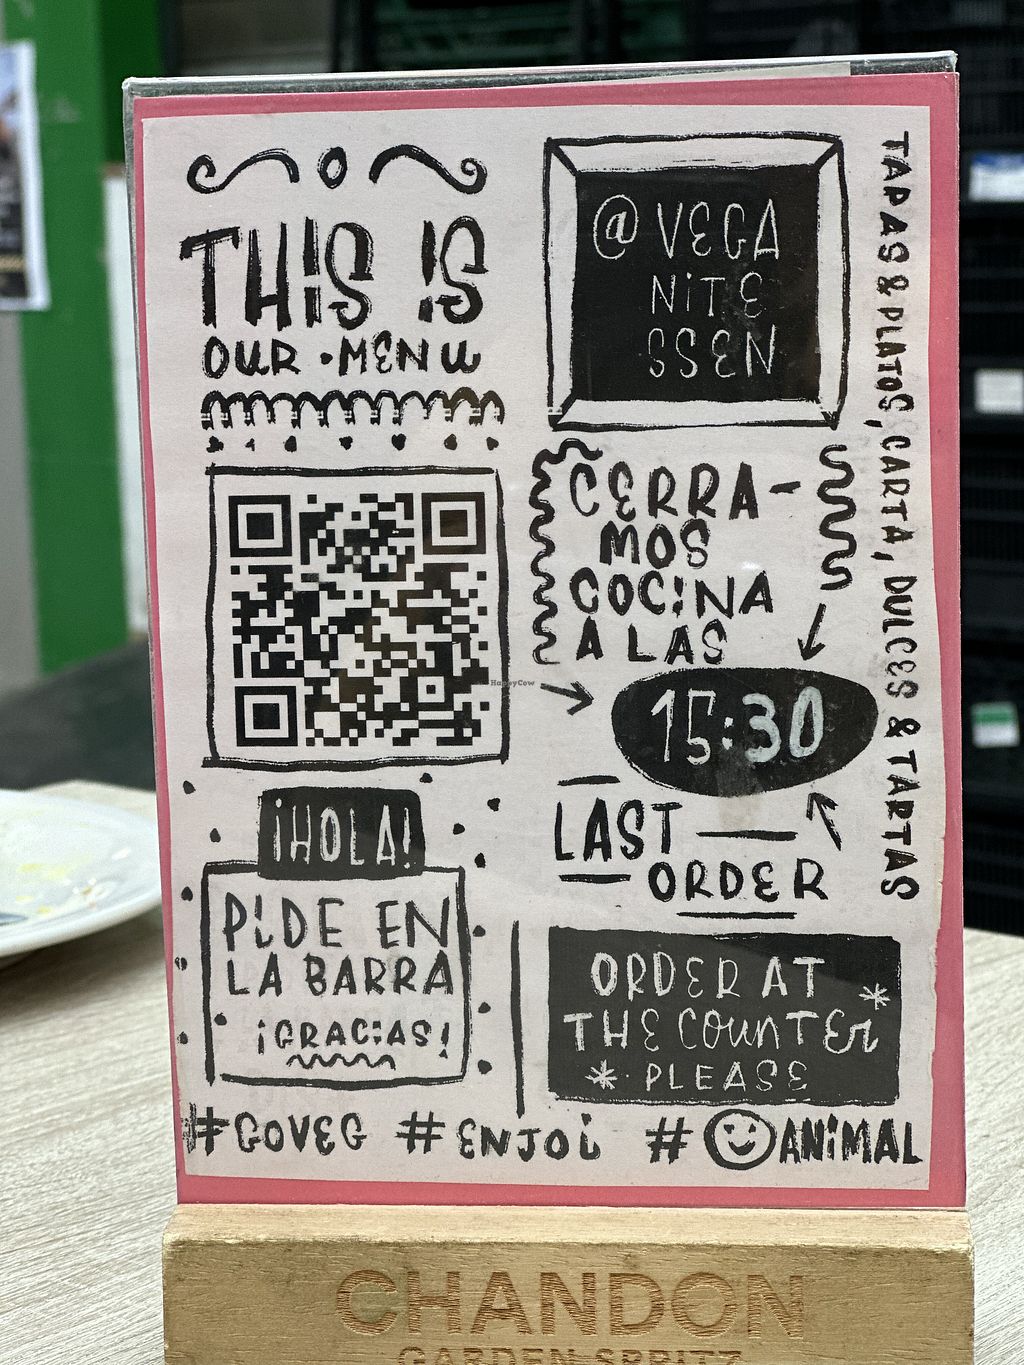 THIS IS
OUR · MENU
@VEGA
NITE
SSEN
CERRA-
MOS
COCINA
A LAS
15:30
LAST
ORDER
TAPAS & PLATOS, CARTA, DULCES & TARTAS
HappyCow
¡HOLA!
PIDE EN
LA BARRA
¡GRACIAS!
ORDER AT
THE COUNTER
PLEASE
#GOVEG #ENJOI #ANIMAL
CHANDON
GARDEN SPRITZ